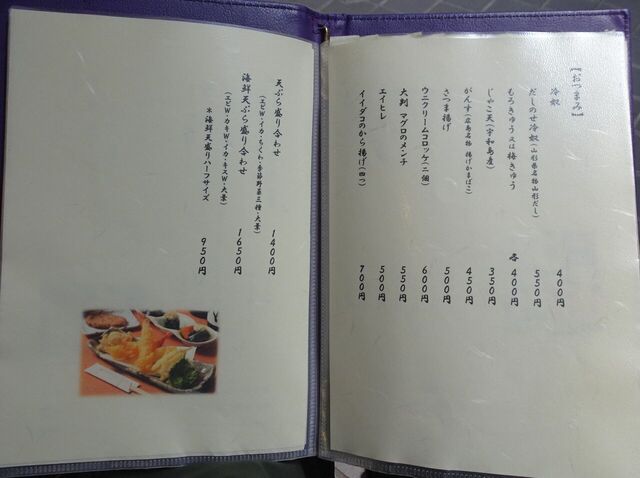 【おつまみ】
冷奴 400円
だしのせ冷奴(山形県名物山形だし) 550円
もろきゅう又は梅きゅう 各400円
じゃこ天(宇和島産) 350円
がんす(広島名物 揚げかまぼこ) 450円
さつま揚げ 500円
ウニクリームコロッケ(二個) 600円
大判 マグロのメンチ 550円
エイヒレ 500円
イイダコのから揚げ(四つ) 700円
天ぷら盛り合わせ 1400円
(エビW・イカ・ちくわ・季節野菜三種・大葉)
海鮮天ぷら盛り合わせ 1650円
(エビW・カキW・イカ・キスW・大葉)
*海鮮天盛りハーフサイズ 950円